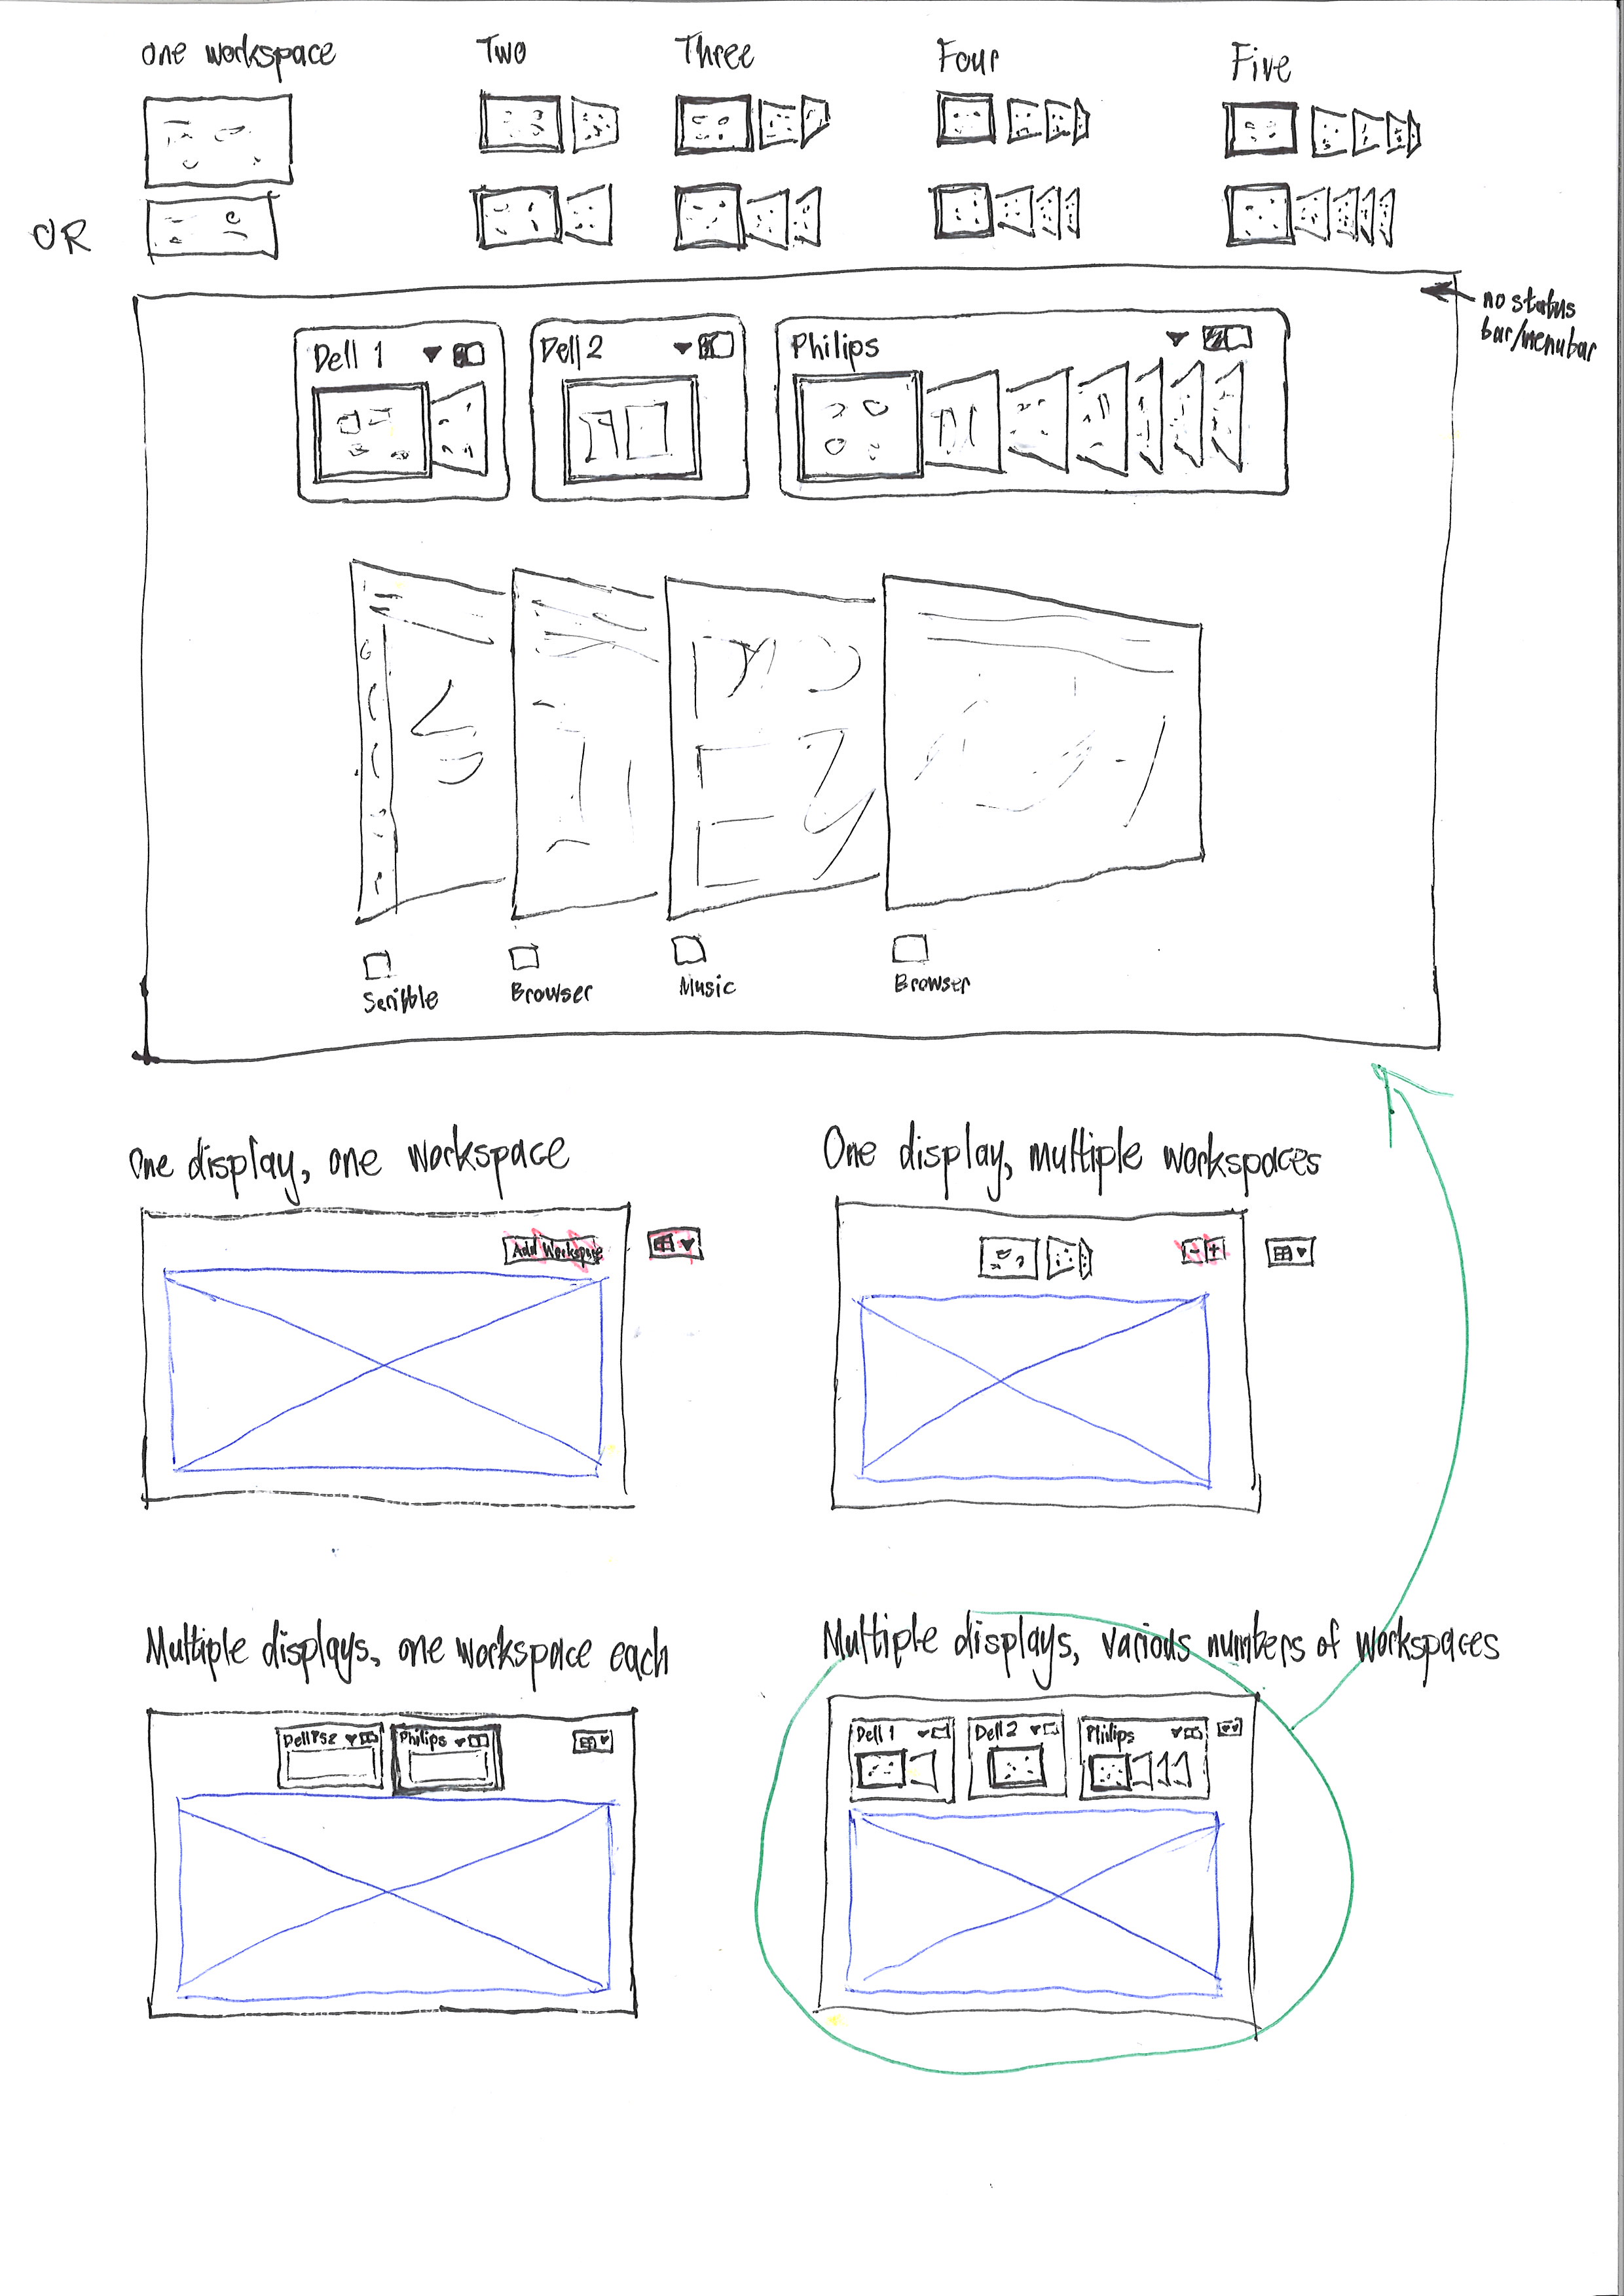 one workspace
Two
Three
Four
Five
OR
no status
bar/menubar
Dell 1
Dell 2
Philips
Scribble
Browser
Music
Browser
One display, one workspace
One display, multiple workspaces
Add Workspace
- +
Multiple displays, one workspace each
Multiple displays, various numbers of workspaces
Philips
Dell 1
Dell 2
Philips